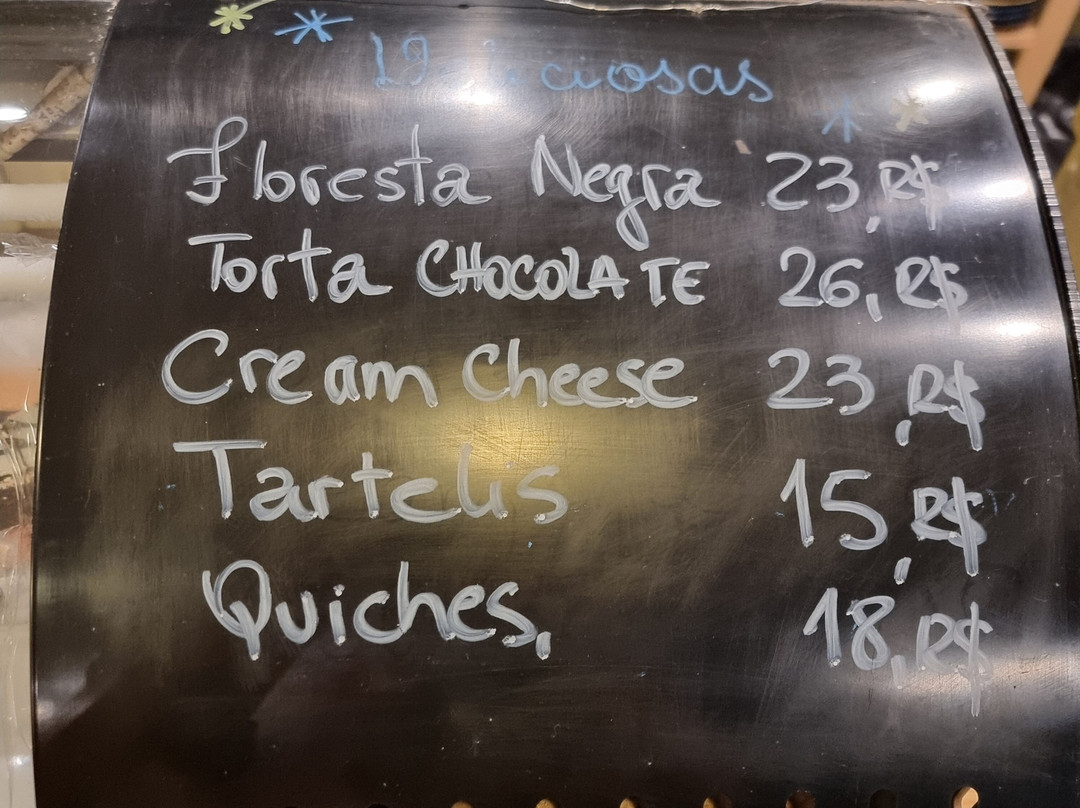 Floresta Negra 23,R$
Torta CHOCOLATE 26,R$
Cream Cheese 23,R$
Tartelis 15,R$
Quiches, 18,R$